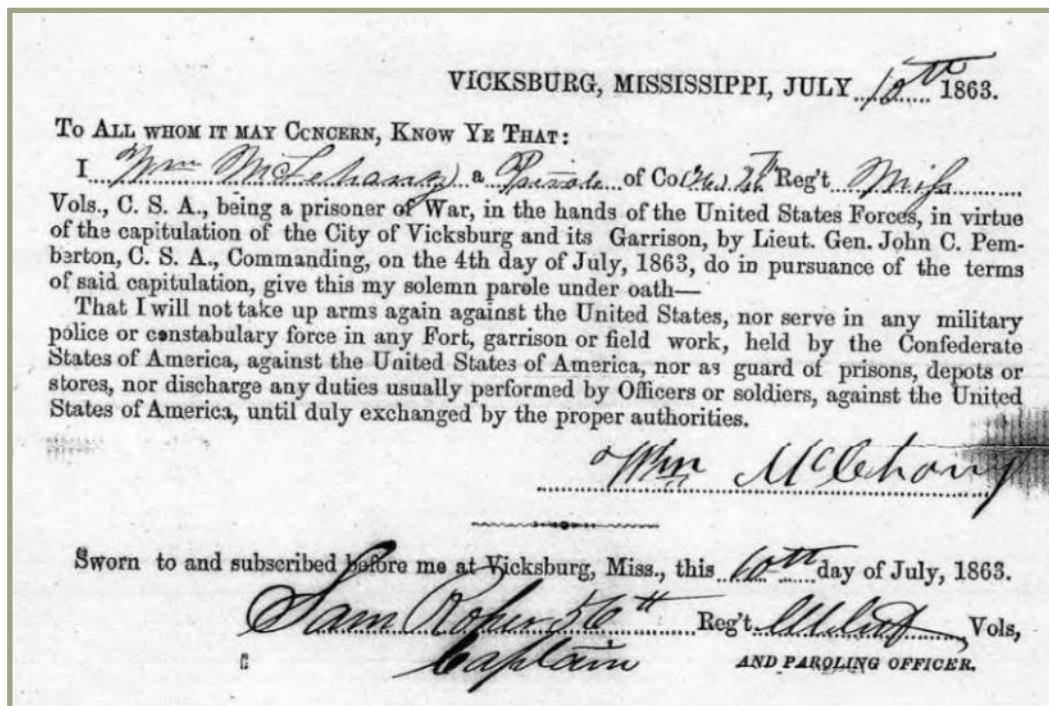 VICKSBURG, MISSISSIPPI, JULY 10th 1863.
TO ALL WHOM IT MAY CCNCERN, KNOW YE THAT:
I Wm a Private of Co Reg't Miss
Vols., C. S. A., being a prisoner of War, in the hands of the United States Forces, in virtue
of the capitulation of the City of Vicksburg and its Garrison, by Lieut. Gen. John C. Pem-
berton, C. S. A., Commanding, on the 4th day of July, 1863, do in pursuance of the terms
of said capitulation, give this my solemn parole under oath—
That I will not take up arms again against the United States, nor serve in any military
police or constabulary force in any Fort, garrison or field work, held by the Confederate
States of America, against the United States of America, nor as guard of prisons, depots or
stores, nor discharge any duties usually performed by Officers or soldiers, against the United
States of America, until duly exchanged by the proper authorities.
Wm
Sworn to and subscribed before me at Vicksburg, Miss., this 10th day of July, 1863.
Sam Roper 56th Reg't Vols,
Captain AND PAROLING OFFICER.